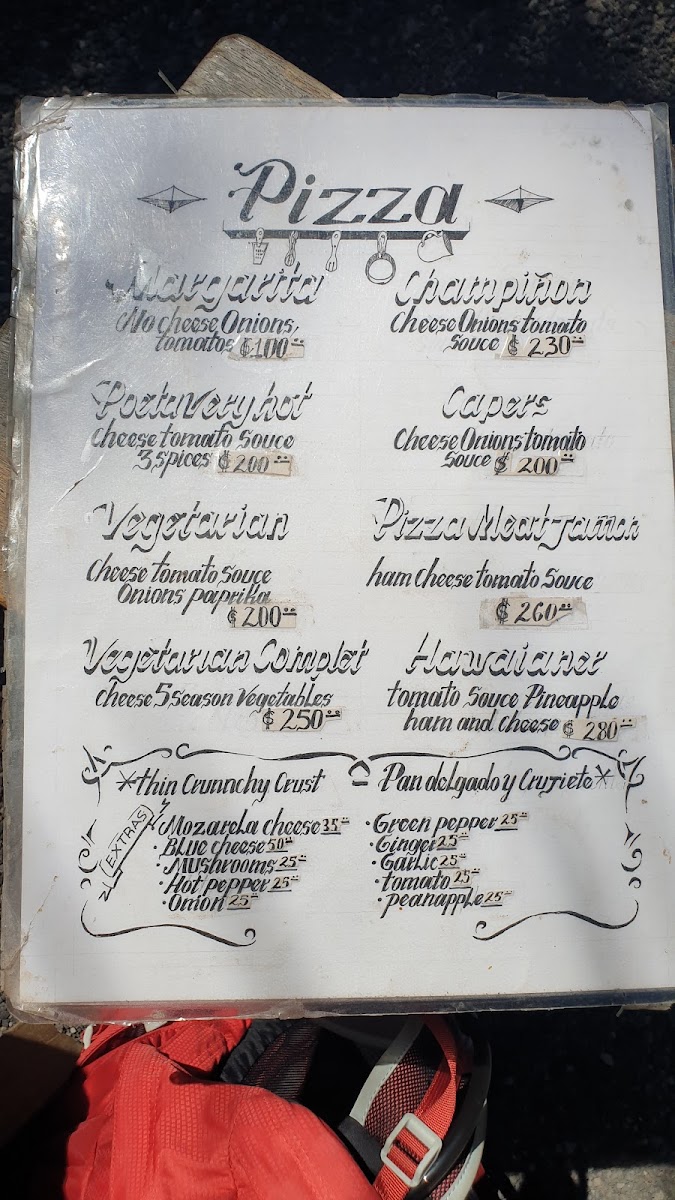 Pizza
Margarita
No cheese Onions,
tomatos $100
Champiñon
Cheese Onions tomato
Souce $230
Poeta Very hot
Cheese tomato Souce
3, spices $200
Capers
Cheese Onions tomato
Souce $200
Vegetarian
Cheese tomato Souce
Onions paprika
$200
Pizza Meat-Jamon
ham cheese tomato Souce
$260
Vegetarian Complet
cheese 5 Season Vegetables
$250
Hawaianer
tomato Souce Pineapple
ham and cheese $280
*thin Crunnchy Crust
Pan delgado y Crujiete*
EXTRAS
Mozarela cheese 35
· Blue cheese 50
· Mushrooms 25
· Hot pepper 25
· Onion 25
· Green pepper 25
· Ginger 25
· Garlic 25
· tomato 25
· peanapple 25